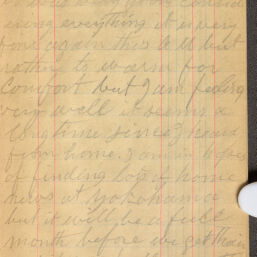 ering everything it is very
fine again this A.M but
rather to warm for
comfort but I am feeling
very well it seems a
long time since I heard
from home. I am in hopes
of finding lots of home
news at Yokohama
but it will be a full
month before we get their